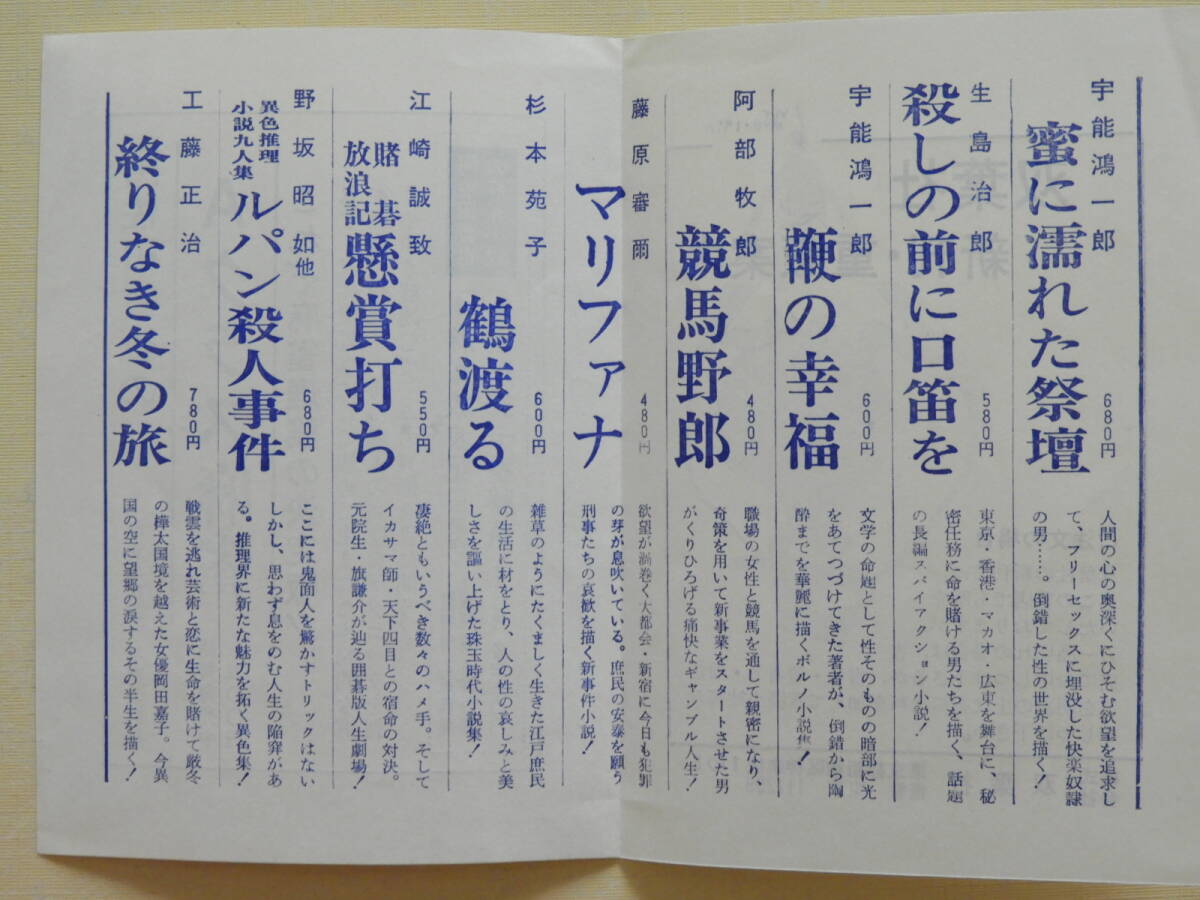 宇能鴻一郎
蜜に濡れた祭壇
680円
人間の心の奥深くにひそむ欲望を追求し
て、フリーセックスに埋没した快楽奴隷
の男……。倒錯した性の世界を描く！
生島治郎
殺しの前に口笛を
580円
東京・香港・マカオ・広東を舞台に、秘
密任務に命を賭ける男たちを描く、話題
の長編スパイアクション小説！
宇能鴻一郎
鞭の幸福
600円
文学の命題として性そのものの暗部に光
をあてつづけてきた著者が、倒錯から陶
酔までを華麗に描くポルノ小説集！
阿部牧郎
競馬野郎
480円
職場の女性と競馬を通して親密になり、
奇策を用いて新事業をスタートさせた男
がくりひろげる痛快なギャンブル人生！
藤原審爾
マリファナ
480円
欲望が渦巻く大都会・新宿に今日も犯罪
の芽が息吹いている。庶民の安泰を願う
刑事たちの哀歓を描く新事件小説！
杉本苑子
鶴渡る
600円
雑草のようにたくましく生きた江戸庶民
の生活に材をとり、人の性の哀しみと美
しさを謳い上げた珠玉時代小説集！
江崎誠致
賭碁
放浪記
懸賞打ち
550円
凄絶ともいうべき数々のハメ手。そして
イカサマ師・天下四目との宿命の対決。
元院生・旗謙介が辿る囲碁版人生劇場！
野坂昭如他
異色推理
小説九人集
ルパン殺人事件
680円
ここには鬼面人を驚かすトリックはない
しかし、思わず息をのむ人生の陥穽があ
る。推理界に新たな魅力を拓く異色集！
工藤正治
終りなき冬の旅
780円
戦雲を逃れ芸術と恋に生命を賭けて厳冬
の樺太国境を越えた女優岡田嘉子。今異
国の空に望郷の涙するその半生を描く！